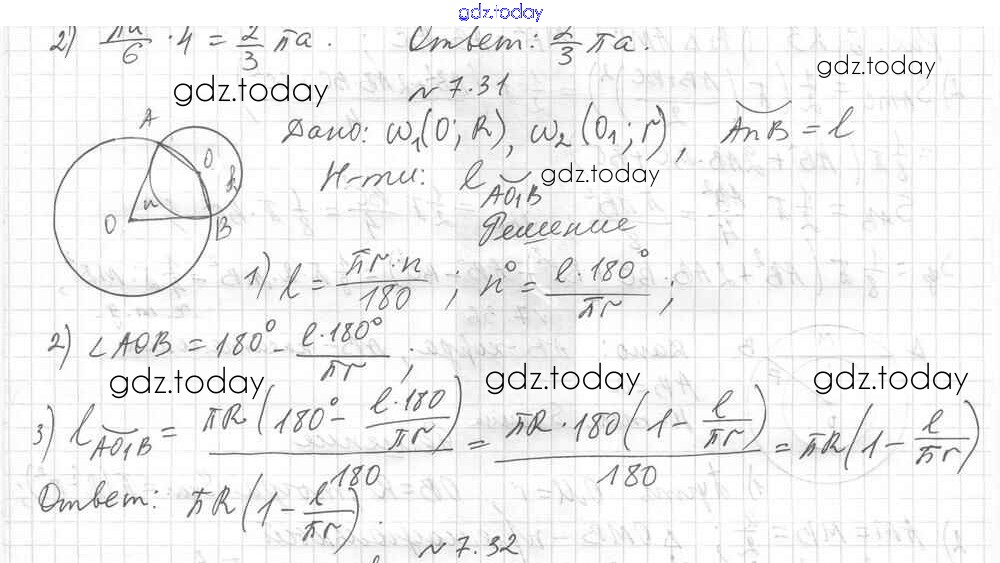 gdz.today
2) πa/6 · 4 = 2/3 πa. Ответ: 2/3 πa.
gdz.today
gdz.today
№ 7.31
A
O
n
B
O
Дано: ω₁(O; R), ω₂(O₁; r), ⌣AnB = l
Н-ти: l ⌣AO₁B
gdz.today
Решение
1) l = πr·n/180 ; n° = l·180°/πr ;
2) ∠AOB = 180° - l·180°/πr ;
gdz.today gdz.today gdz.today
3) l ⌣AO₁B = πR(180° - l·180/πr)/180 = πR·180(1 - l/πr)/180 = πR(1 - l/πr)
Ответ: πR(1 - l/πr).
№ 7.32